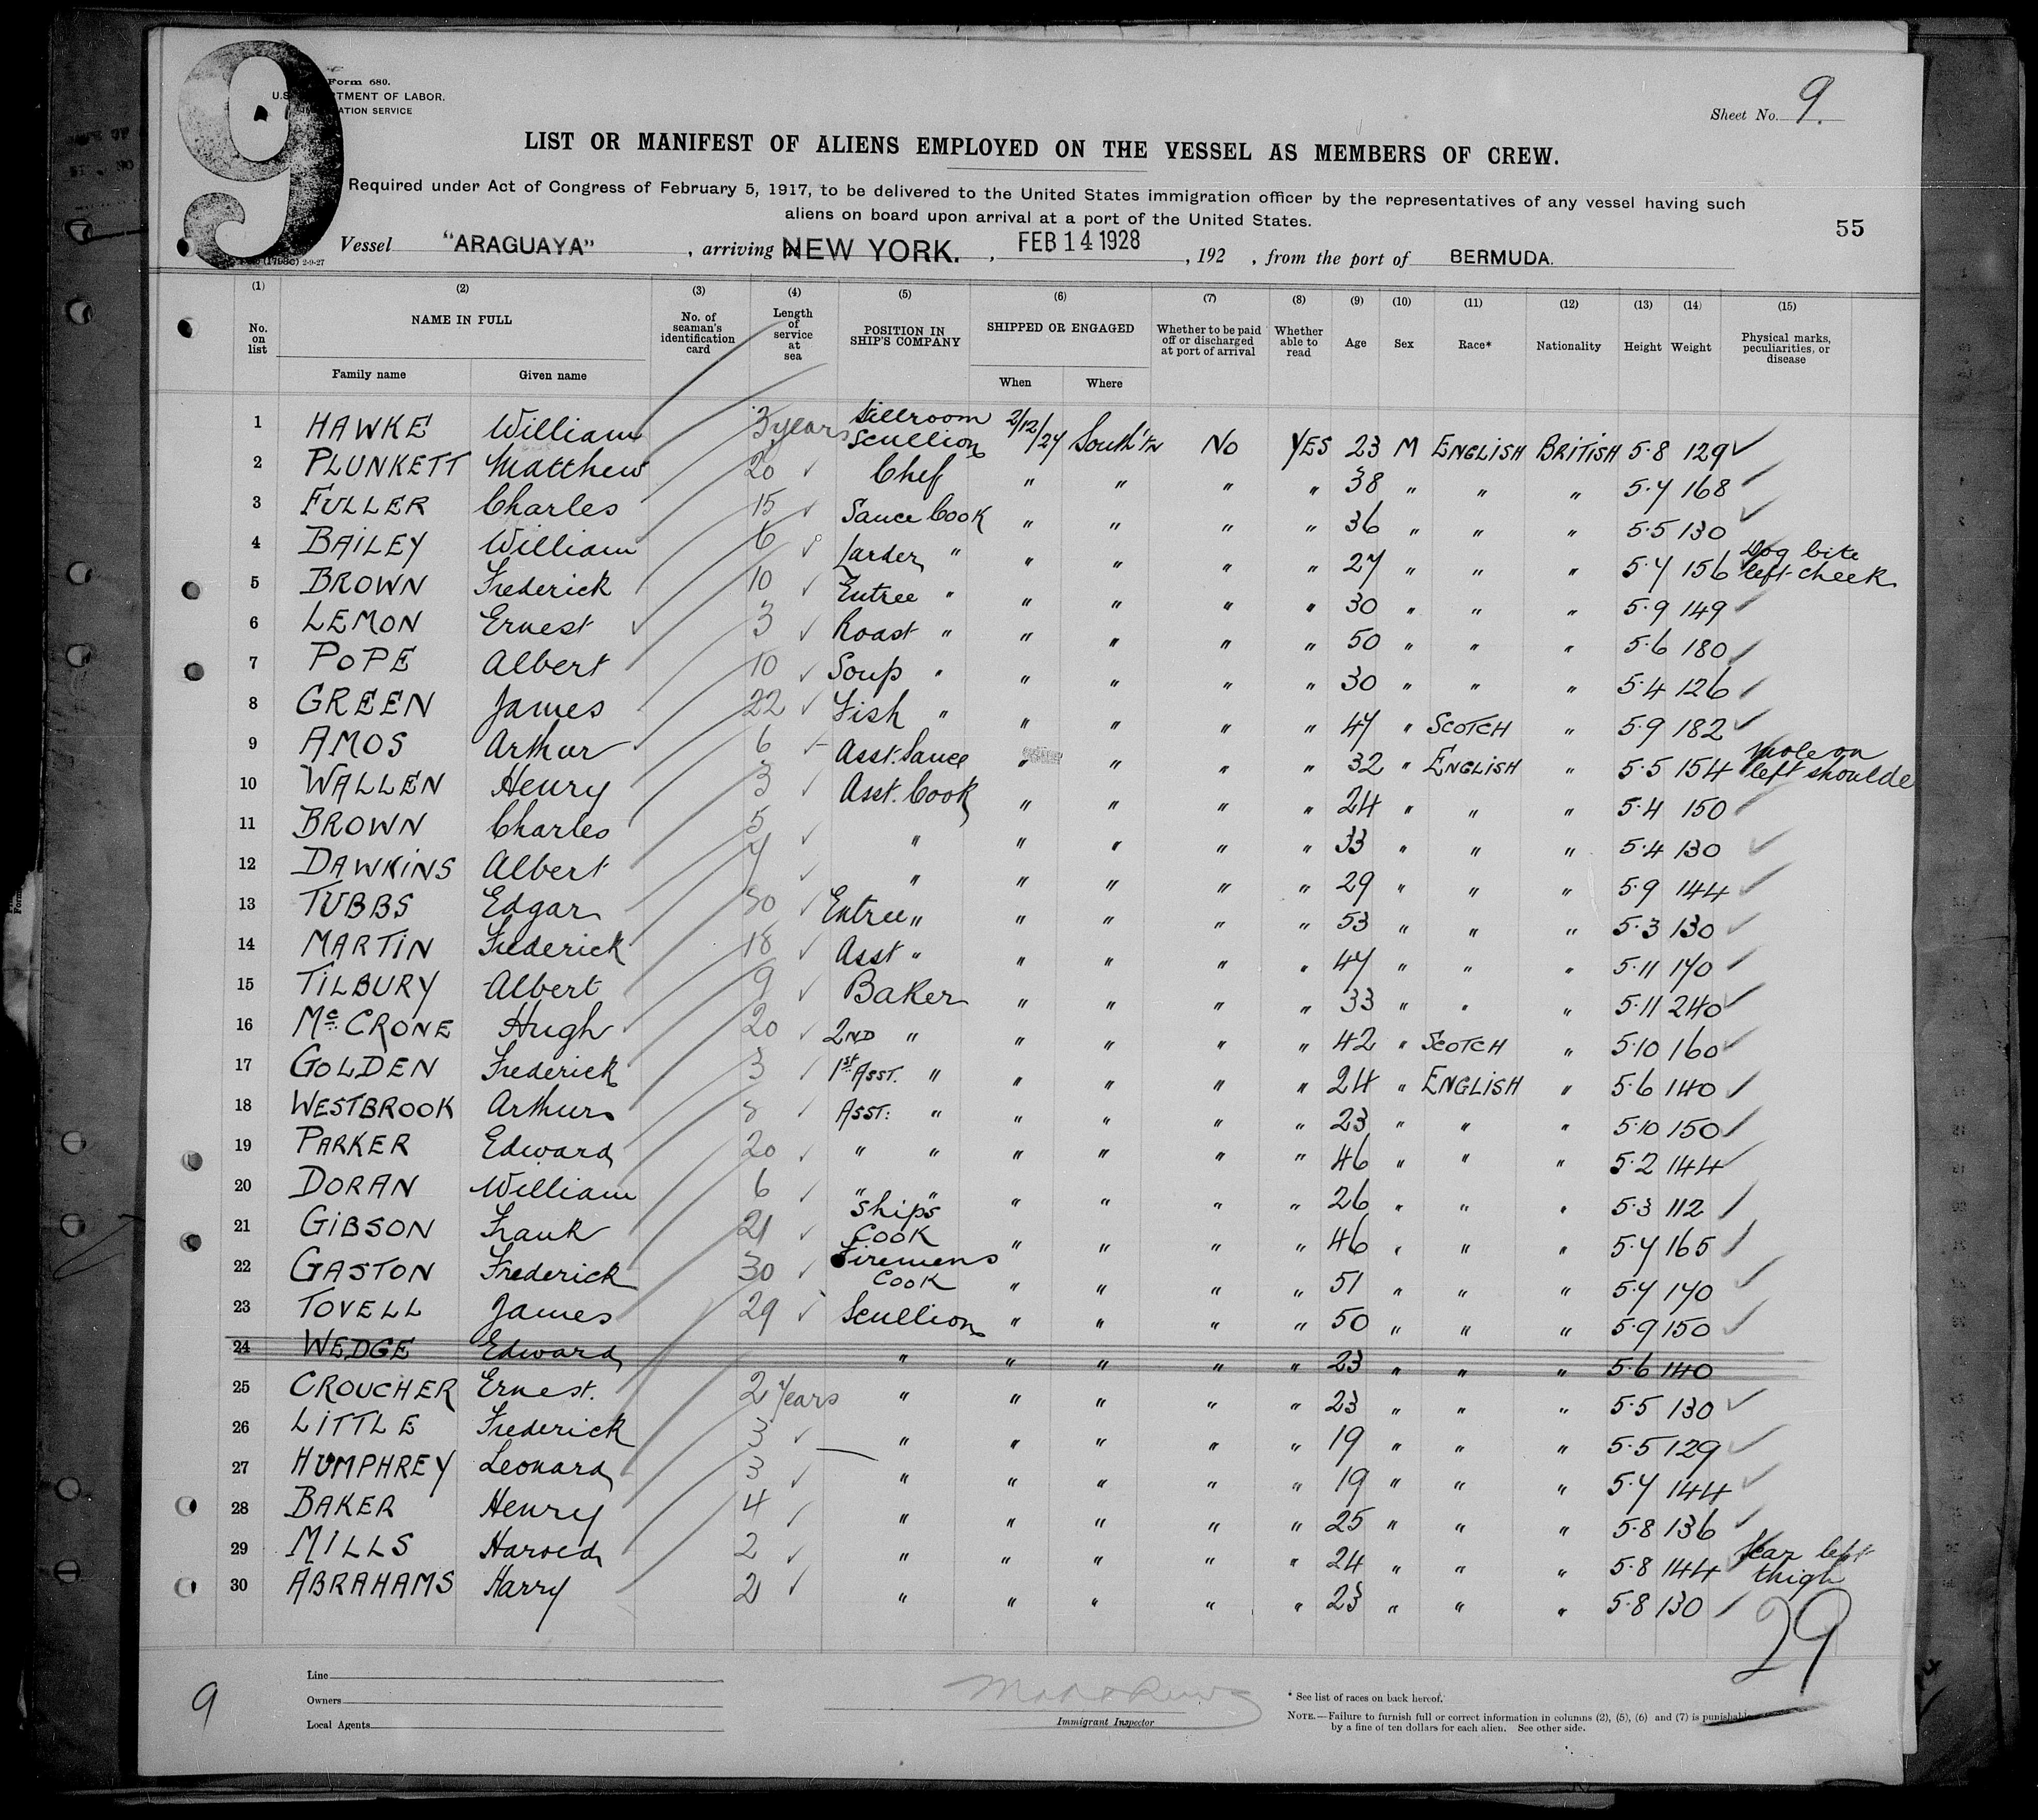 9
Form 680.
U.S. DEPARTMENT OF LABOR.
IMMIGRATION SERVICE
Sheet No. 9.
LIST OR MANIFEST OF ALIENS EMPLOYED ON THE VESSEL AS MEMBERS OF CREW.
Required under Act of Congress of February 5, 1917, to be delivered to the United States immigration officer by the representatives of any vessel having such
aliens on board upon arrival at a port of the United States.
55
Vessel "ARAGUAYA", arriving at NEW YORK., FEB 14 1928, 192 , from the port of BERMUDA.
2-9-27
(1) (2) (3) (4) (5) (6) (7) (8) (9) (10) (11) (12) (13) (14) (15)
No. on list NAME IN FULL No. of seaman's identification card Length of service at sea POSITION IN SHIP'S COMPANY SHIPPED OR ENGAGED Whether to be paid off or discharged at port of arrival Whether able to read Age Sex Race* Nationality Height Weight Physical marks, peculiarities, or disease
Family name Given name When Where
1 HAWKE William 3 years Stillroom Scullion 2/12/27 South'tn No YES 23 M ENGLISH BRITISH 5.8 129 ✓
2 PLUNKETT Matthew 20 ✓ Chef " " " " 38 " " " 5.7 168 ✓
3 FULLER Charles 15 ✓ Sauce Cook " " " " 36 " " " 5.5 130 ✓
4 BAILEY William 6 ✓ Larder " " " " " 27 " " " 5.7 156 Dog bite left cheek
5 BROWN Frederick 10 ✓ Entree " " " " " 30 " " " 5.9 149 ✓
6 LEMON Ernest ✓ 3 ✓ Roast " " " " " 50 " " " 5.6 180 ✓
7 POPE Albert 10 ✓ Soup " " " " " 30 " " " 5.4 126 ✓
8 GREEN James 22 ✓ Fish " " " " " 47 " SCOTCH " 5.9 182 ✓
9 AMOS Arthur 6 ✓ Asst. Sauce " " " " 32 " ENGLISH " 5.5 154 Mole on left shoulde
10 WALLEN Henry 3 ✓ Asst. Cook " " " " 24 " " " 5.4 150 ✓
11 BROWN Charles 5 ✓ " " " " " 33 " " " 5.4 130 ✓
12 DAWKINS Albert 7 ✓ " " " " " 29 " " " 5.9 144 ✓
13 TUBBS Edgar 30 ✓ Entree " " " " " 53 " " " 5.3 130 ✓
14 MARTIN Frederick 18 ✓ Asst " " " " " 47 " " " 5.11 170 ✓
15 TILBURY Albert 9 ✓ Baker " " " " 33 " " " 5.11 240 ✓
16 McCRONE Hugh 20 ✓ 2ND " " " " " 42 " SCOTCH " 5.10 160 ✓
17 GOLDEN Frederick 3 ✓ 1st ASST. " " " " " 24 " ENGLISH " 5.6 140 ✓
18 WESTBROOK Arthur ✓ ASST: " " " " " 23 " " " 5.10 150 ✓
19 PARKER Edward 20 ✓ " " " " " " 46 " " " 5.2 144 ✓
20 DORAN William 6 ✓ " " " " " " 26 " " " 5.3 112 ✓
21 GIBSON Frank 21 ✓ Ships Cook " " " " 46 " " " 5.7 165 ✓
22 GASTON Frederick 30 ✓ Firemens Cook " " " " 51 " " " 5.7 170 ✓
23 TOVELL James 29 ✓ Scullion " " " " 50 " " " 5.9 150 ✓
24 WEDGE Edward " " " " " 23 " " " 5.6 140
25 CROUCHER Ernest. 2 years " " " " " 23 " " " 5.5 130 ✓
26 LITTLE Frederick 3 ✓ " " " " " 19 " " " 5.5 129 ✓
27 HUMPHREY Leonard 3 ✓ " " " " " 19 " " " 5.7 144 ✓
28 BAKER Henry 4 ✓ " " " " " 25 " " " 5.8 136 ✓
29 MILLS Harold 2 ✓ " " " " " 24 " " " 5.8 144 Scar left thigh
30 ABRAHAMS Harry 2 ✓ " " " " " 23 " " " 5.8 130 ✓
29
9
Line
Owners
Local Agents
Immigrant Inspector
* See list of races on back hereof.
NOTE.—Failure to furnish full or correct information in columns (2), (5), (6) and (7) is punishable
by a fine of ten dollars for each alien. See other side.